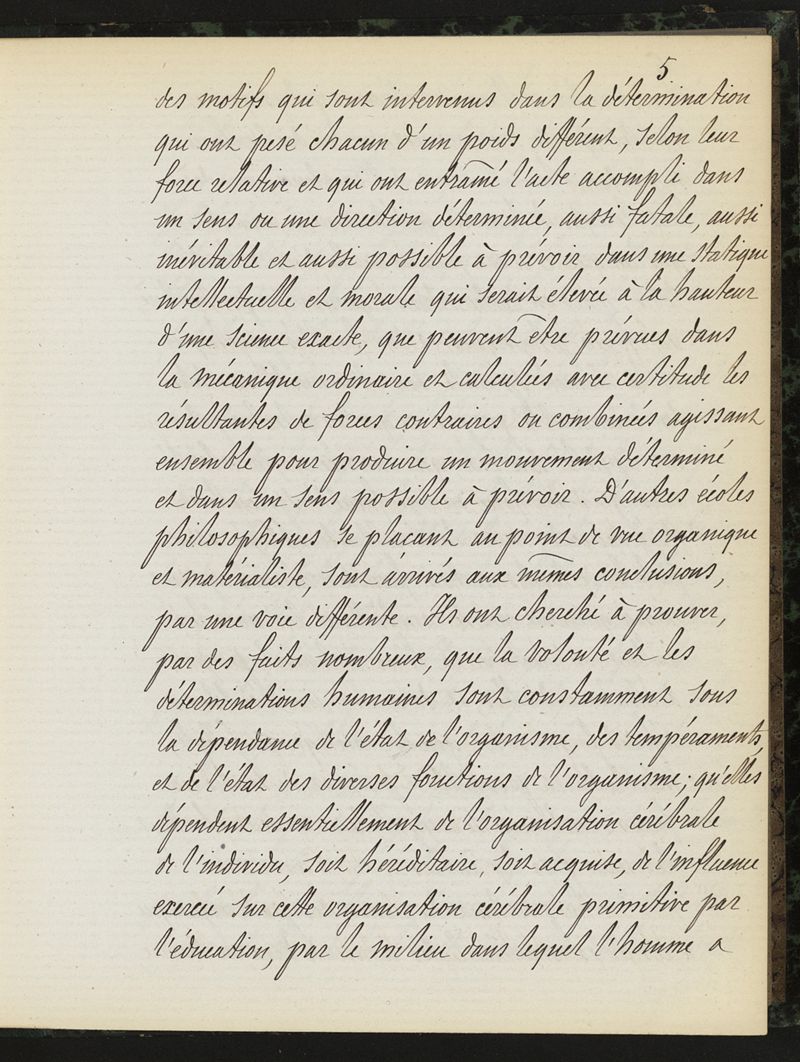 5
des motifs qui sont intervenus dans la détermination
qui ont pesé chacun d'un poids différent, selon leur
force relative et qui ont entraîné l'acte accompli dans
un sens ou une direction déterminée, aussi fatale, aussi
inévitable et aussi possible à prévoir dans une statique
intellectuelle et morale qui serait élevée à la hauteur
d'une science exacte, que peuvent être prévues dans
la mécanique ordinaire et calculées avec certitude les
résultantes de forces contraires ou combinées agissant
ensemble pour produire un mouvement déterminé
et dans un sens possible à prévoir. D'autres écoles
philosophiques se plaçant au point de vue organique
et matérialiste, sont arrivés aux mêmes conclusions,
par une voie différente. Ils ont cherché à prouver,
par des faits nombreux, que la volonté et les
déterminations humaines sont constamment sous
la dépendance de l'état de l'organisme, des tempéraments,
et de l'état des diverses fonctions de l'organisme; qu'elles
dépendent essentiellement de l'organisation cérébrale
de l'individu, soit héréditaire, soit acquise, de l'influence
exercée sur cette organisation cérébrale primitive par
l'éducation, par le milieu dans lequel l'homme a